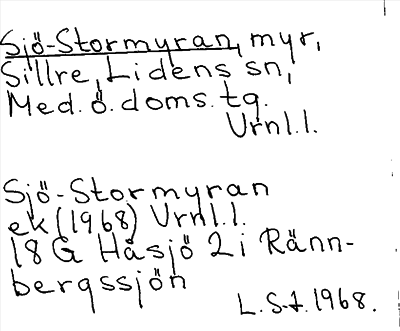 Sjö-Stormyran, myr,
Sillre, Lidens sn,
Med. ö. doms. tg.
Vrnl.l.
Sjö-Stormyran
ek (1968) Vrnl.l.
18 G Håsjö 2 i Ränn-
bergssjön
L.S-t. 1968.